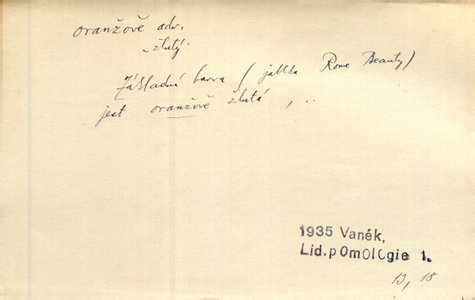 oranžově adv.
žlutý
Základní barva (jablka Rome Beauty)
jest oranžově žlutá, ..
1935 Vaněk,
Lid.pomologie 1.
13, 18